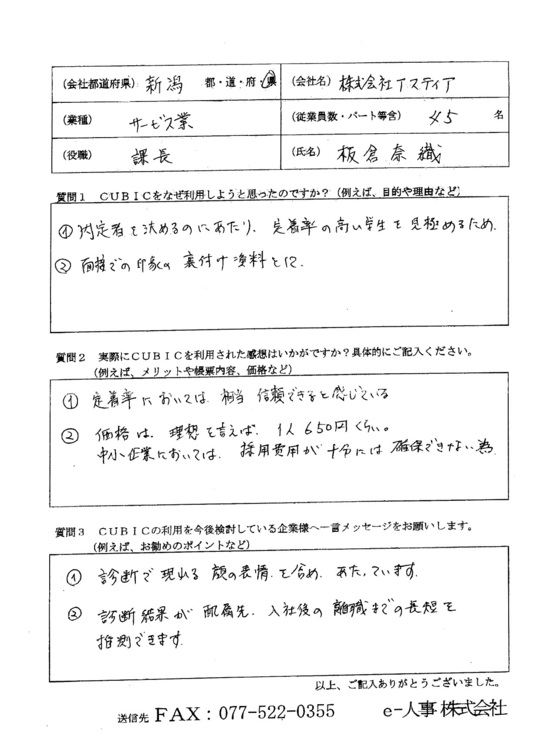 (会社都道府県) 新潟 都・道・府・県
(会社名) 株式会社アスティア
(業種) サービス業
(従業員数・パート等含) 45 名
(役職) 課長
(氏名) 板倉奈織
質問1 CUBICをなぜ利用しようと思ったのですか?(例えば、目的や理由など)
① 内定者を決めるのにあたり、定着率の高い学生を見極めるため.
② 面接での印象の裏付け資料として.
質問2 実際にCUBICを利用された感想はいかがですか?具体的にご記入ください。
(例えば、メリットや帳票内容、価格など)
① 定着率においては 相当 信頼できると感じている
② 価格は、理想を言えば、1人650円くらい。
中小企業においては、採用費用が十分には確保できない為.
質問3 CUBICの利用を今後検討している企業様へ一言メッセージをお願いします。
(例えば、お勧めのポイントなど)
① 診断で現れる 顔の表情を含め、あたっています.
② 診断結果が配属先、入社後の離職までの長短を
推測できます.
以上、ご記入ありがとうございました。
送信先 FAX:077-522-0355 e-人事株式会社